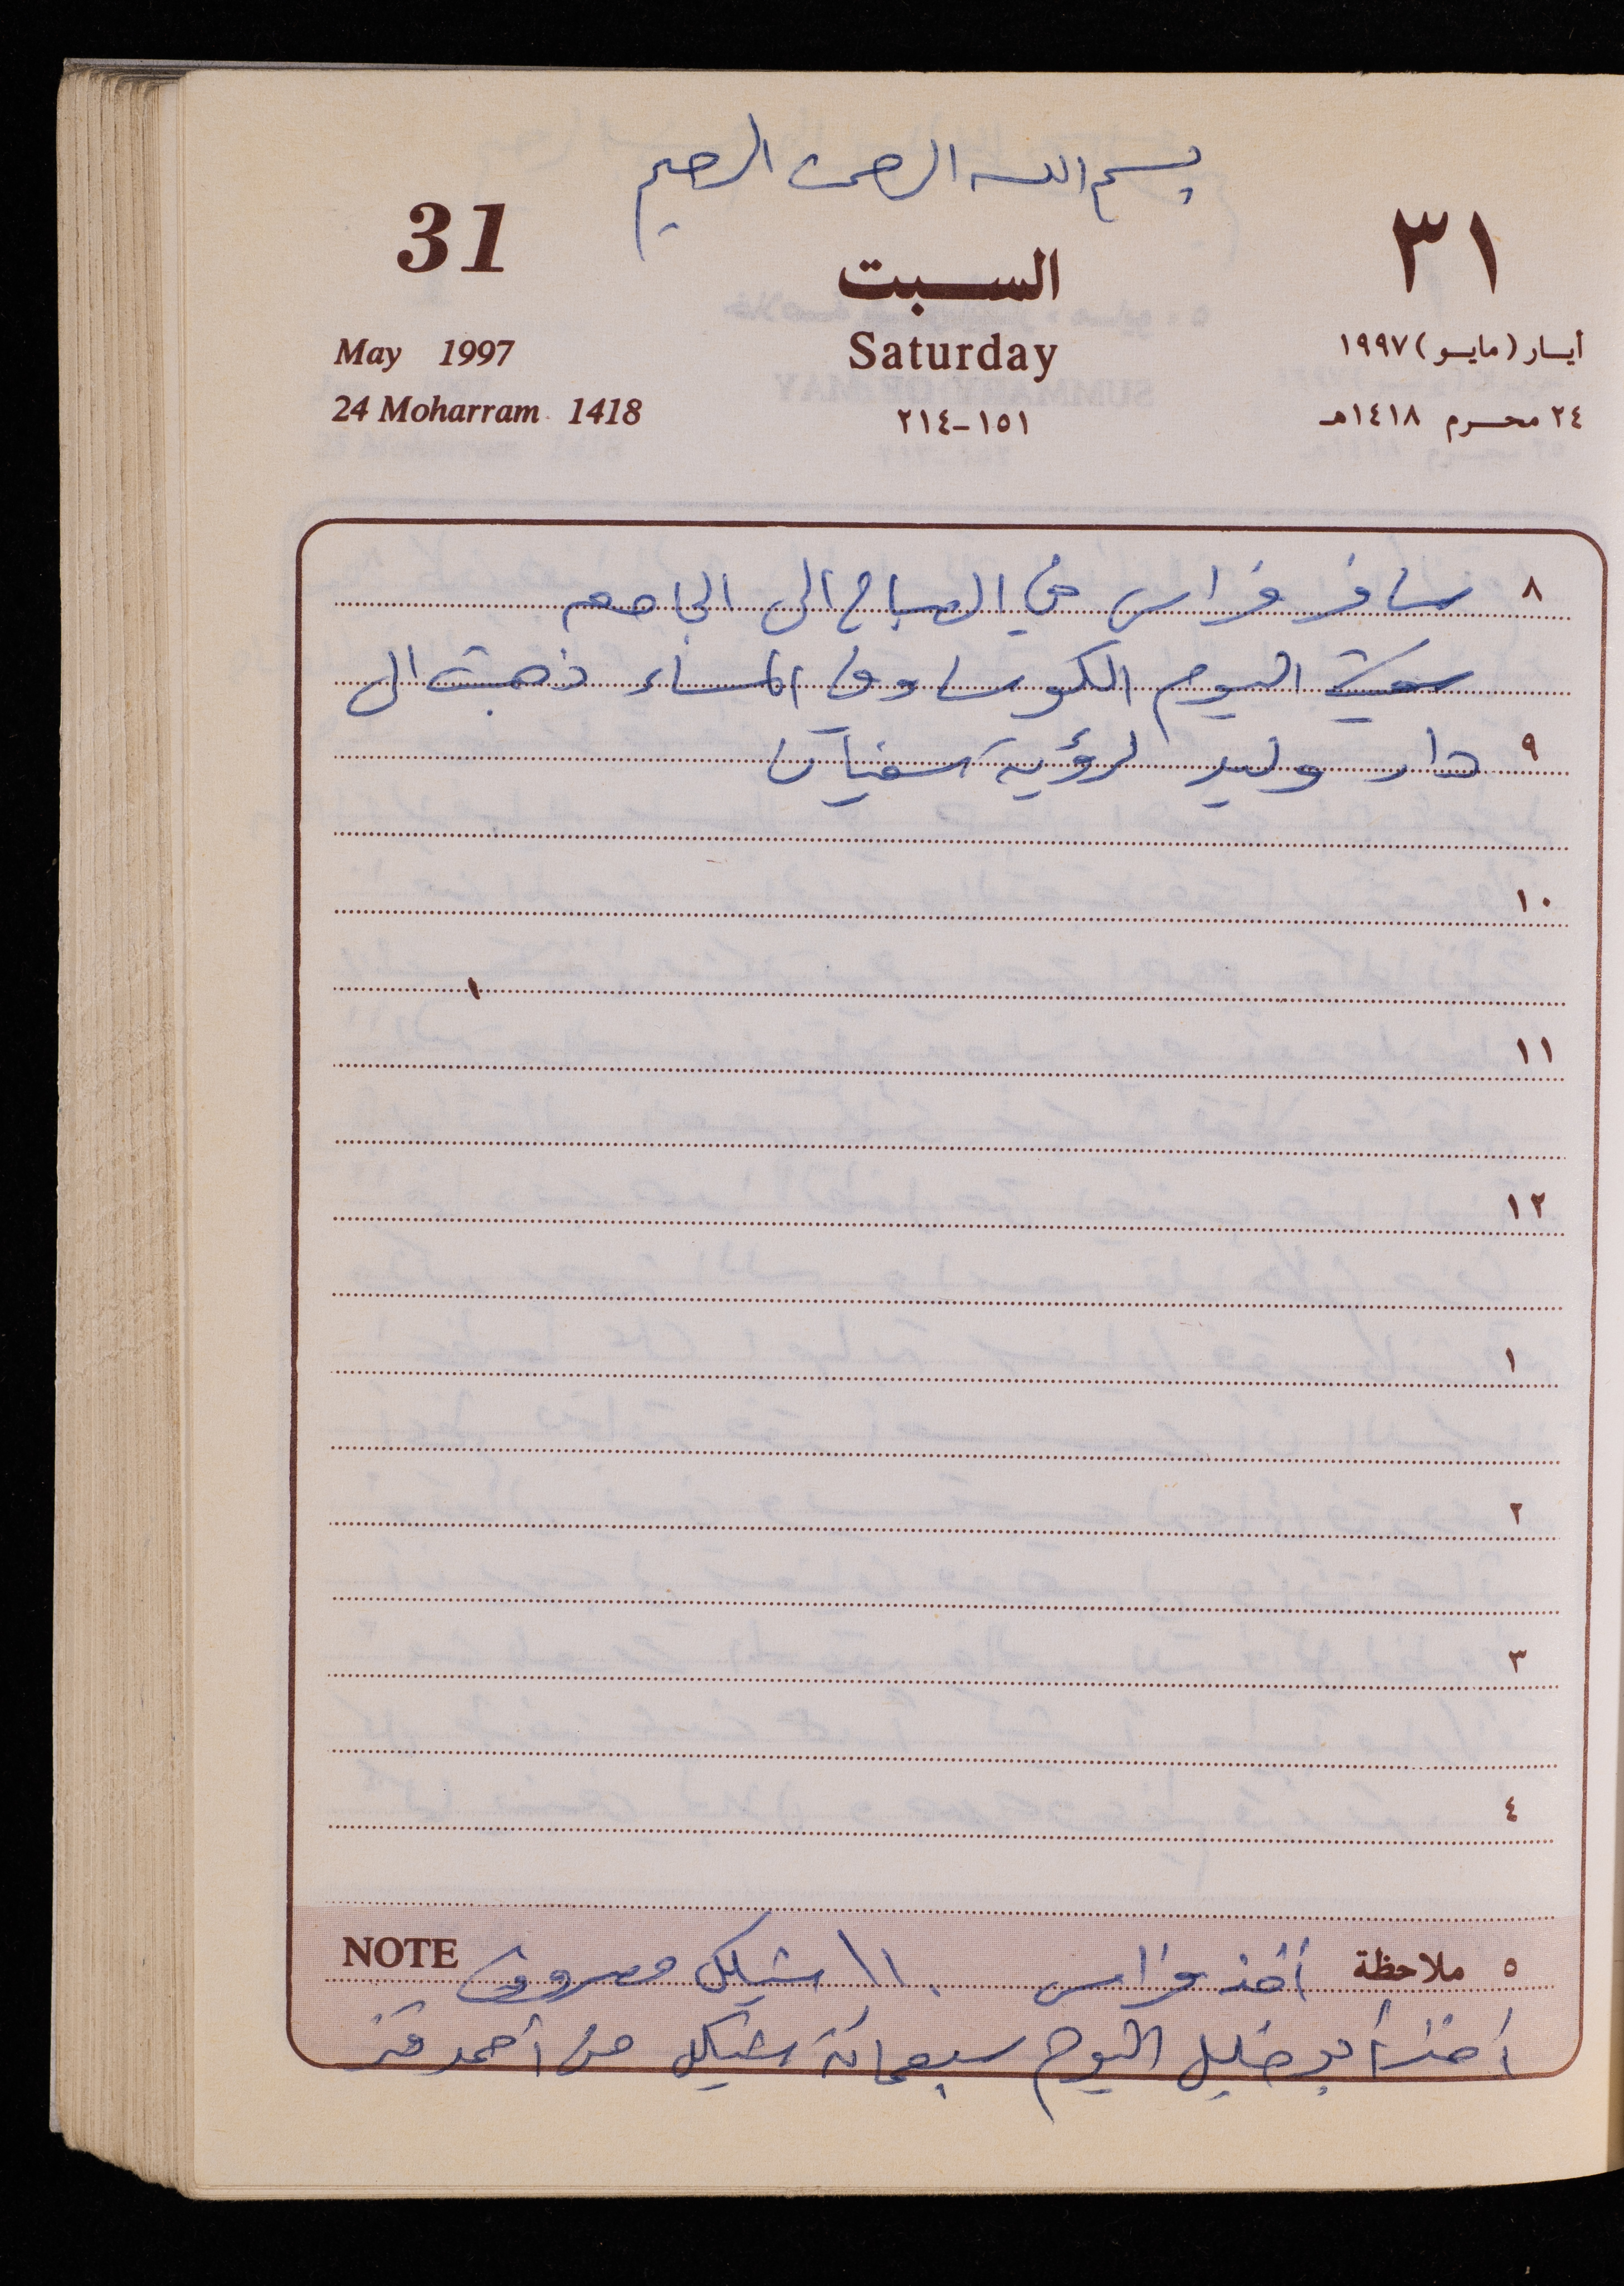 بسم الله الرحمن الرحيم
31 السبت ٣١
May 1997 Saturday أيار (مايو) ١٩٩٧
24 Moharram 1418 ١٥١-٢١٤ ٢٤ محرم ١٤١٨هـ
٨ سافر فراس في الصباح الى الجامعه
اليوم الكوسا وفي المساء ذهبت الى
٩ دار وليد لرؤية سفيان
١٠
١١
١٢
١
٢
٣
٤
٥ ملاحظة أخذ فراس ١١٠ شيكل مصروف NOTE
أخذ أبو خليل اليوم سبعمائة شيكل من أحمد